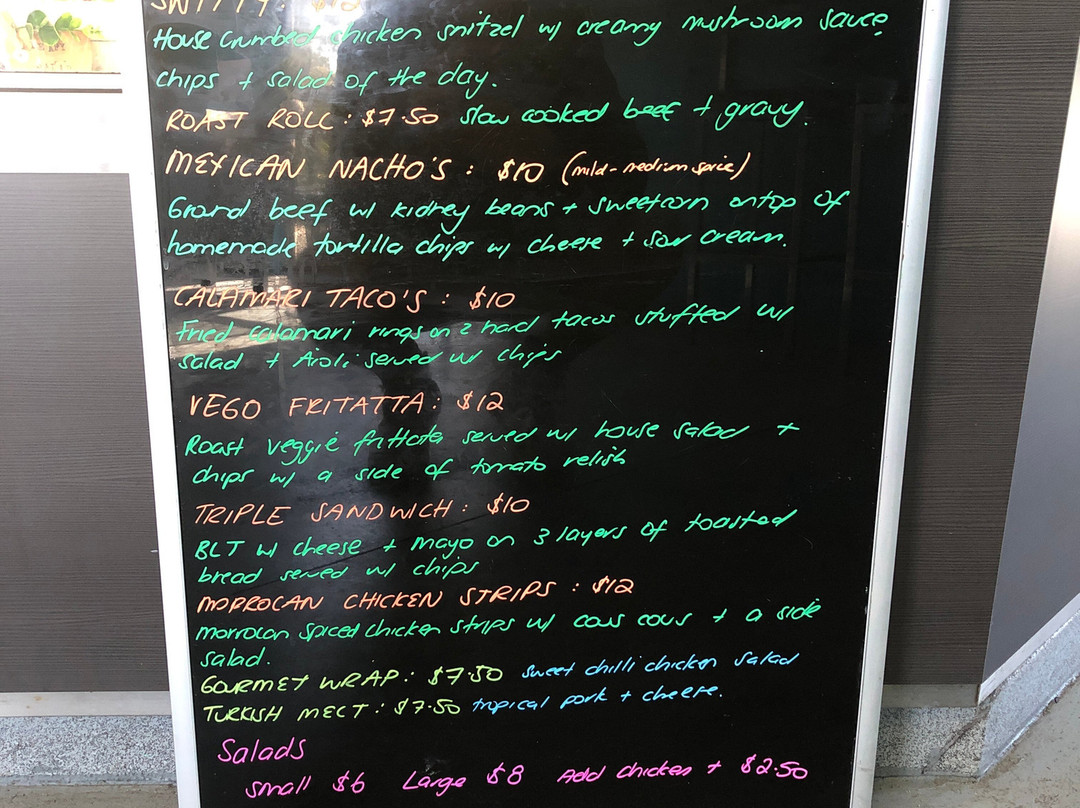 House crumbed chicken snitzel w/ creamy mushroom sauce,
chips + salad of the day.
ROAST ROLL: $7.50 slow cooked beef + gravy.
MEXICAN NACHO'S: $10 (mild-medium spice)
Ground beef w/ kidney beans + sweetcorn ontop of
homemade tortilla chips w/ cheese + sour cream.
CALAMARI TACO'S: $10
Fried calamari rings on 2 hard tacos stuffed w/
salad + Aioli served w/ chips
VEGO FRITATTA: $12
Roast veggie frittata served w/ house salad +
chips w/ a side of tomato relish
TRIPLE SANDWICH: $10
BLT w/ cheese + mayo on 3 layers of toasted
bread served w/ chips
MORROCAN CHICKEN STRIPS: $12
morrocan spiced chicken strips w/ cous cous + a side
salad.
GOURMET WRAP: $7.50 sweet chilli chicken salad
TURKISH MELT: $7.50 tropical pork + cheese.
Salads
Small $6 Large $8 Add chicken + $2.50